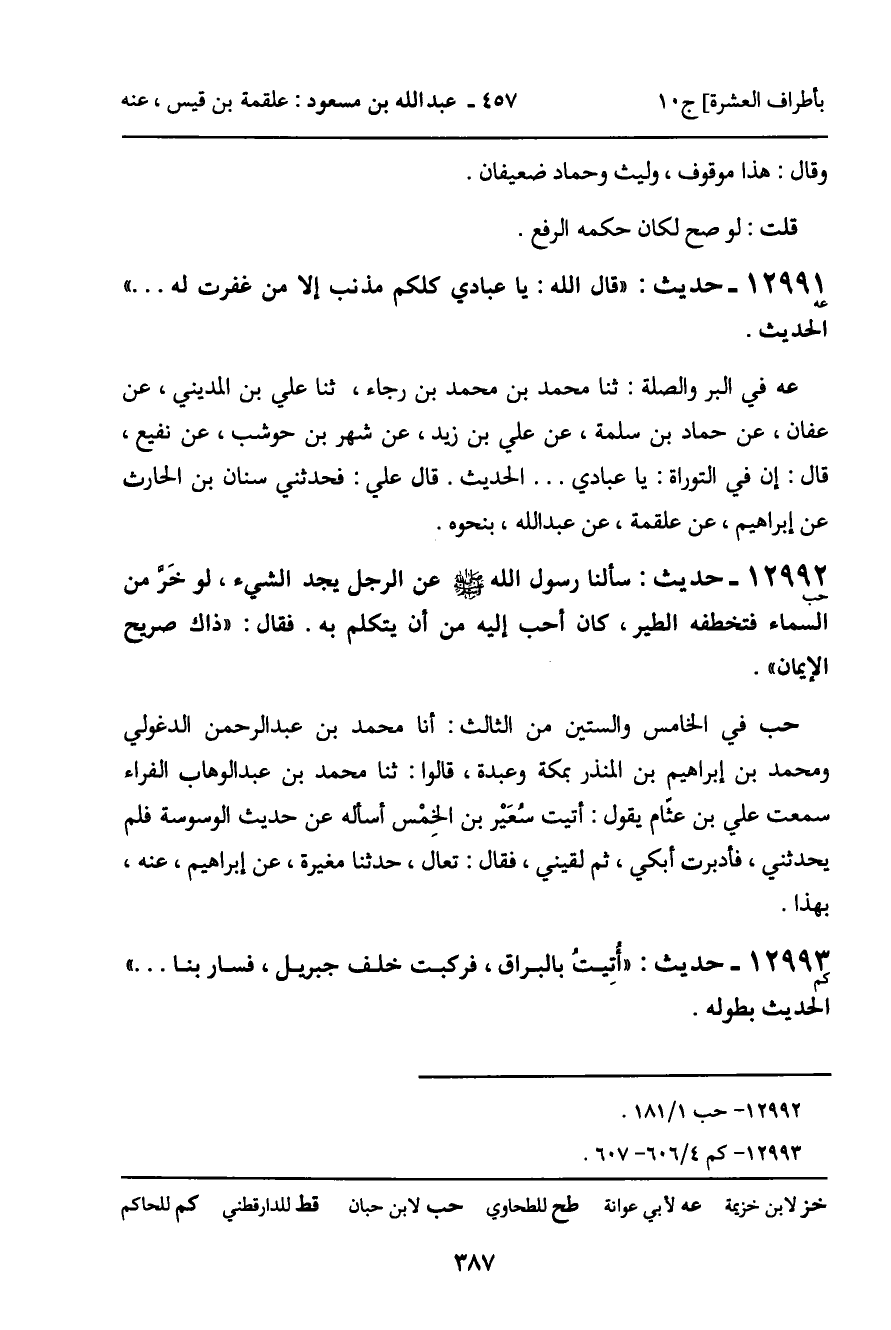 بأطراف العشرة] ج١٠ ٤٥٧ ـ عبدالله بن مسعود : علقمة بن قيس ، عنه
وقال : هذا موقوف ، وليث وحماد ضعيفان .
قلت : لو صح لكان حكمه الرفع .
١٢٩٩١ ـ حديث : «قال الله : يا عبادي كلكم مذنب إلا من غفرت له ...»
عه
الحديث .
عه في البر والصلة : ثنا محمد بن محمد بن رجاء ، ثنا علي بن المديني ، عن
عفان ، عن حماد بن سلمة ، عن علي بن زيد ، عن شهر بن حوشب ، عن نفيع ،
قال : إن في التوراة : يا عبادي ... الحديث . قال علي : فحدثني سنان بن الحارث
عن إبراهيم ، عن علقمة ، عن عبدالله ، بنحوه .
١٢٩٩٢ ـ حديث : سألنا رسول الله ﷺ عن الرجل يجد الشيء ، لو خَرَّ من
حب
السماء فتخطفه الطير ، كان أحب إليه من أن يتكلم به . فقال : «ذاك صريح
الإيمان» .
حب في الخامس والستين من الثالث : أنا محمد بن عبدالرحمن الدغولي
ومحمد بن إبراهيم بن المنذر بمكة وعبدة ، قالوا : ثنا محمد بن عبدالوهاب الفراء
سمعت علي بن عثَّام يقول : أتيت سُعَيْر بن الخِمْس أسأله عن حديث الوسوسة فلم
يحدثني ، فأدبرت أبكي ، ثم لقيني ، فقال : تعال ، حدثنا مغيرة ، عن إبراهيم ، عنه ،
بهذا .
١٢٩٩٣ ـ حديث : «أُتِيتُ بالبراق ، فركبت خلف جبريل ، فسار بنا ...»
كم
الحديث بطوله .
١٢٩٩٢- حب ١٨١/١ .
١٢٩٩٣- كم ٦٠٦/٤- ٦٠٧ .
خز لابن خزيمة عه لأبي عوانة طح للطحاوي حب لابن حبان قط للدارقطني كم للحاكم
٣٨٧